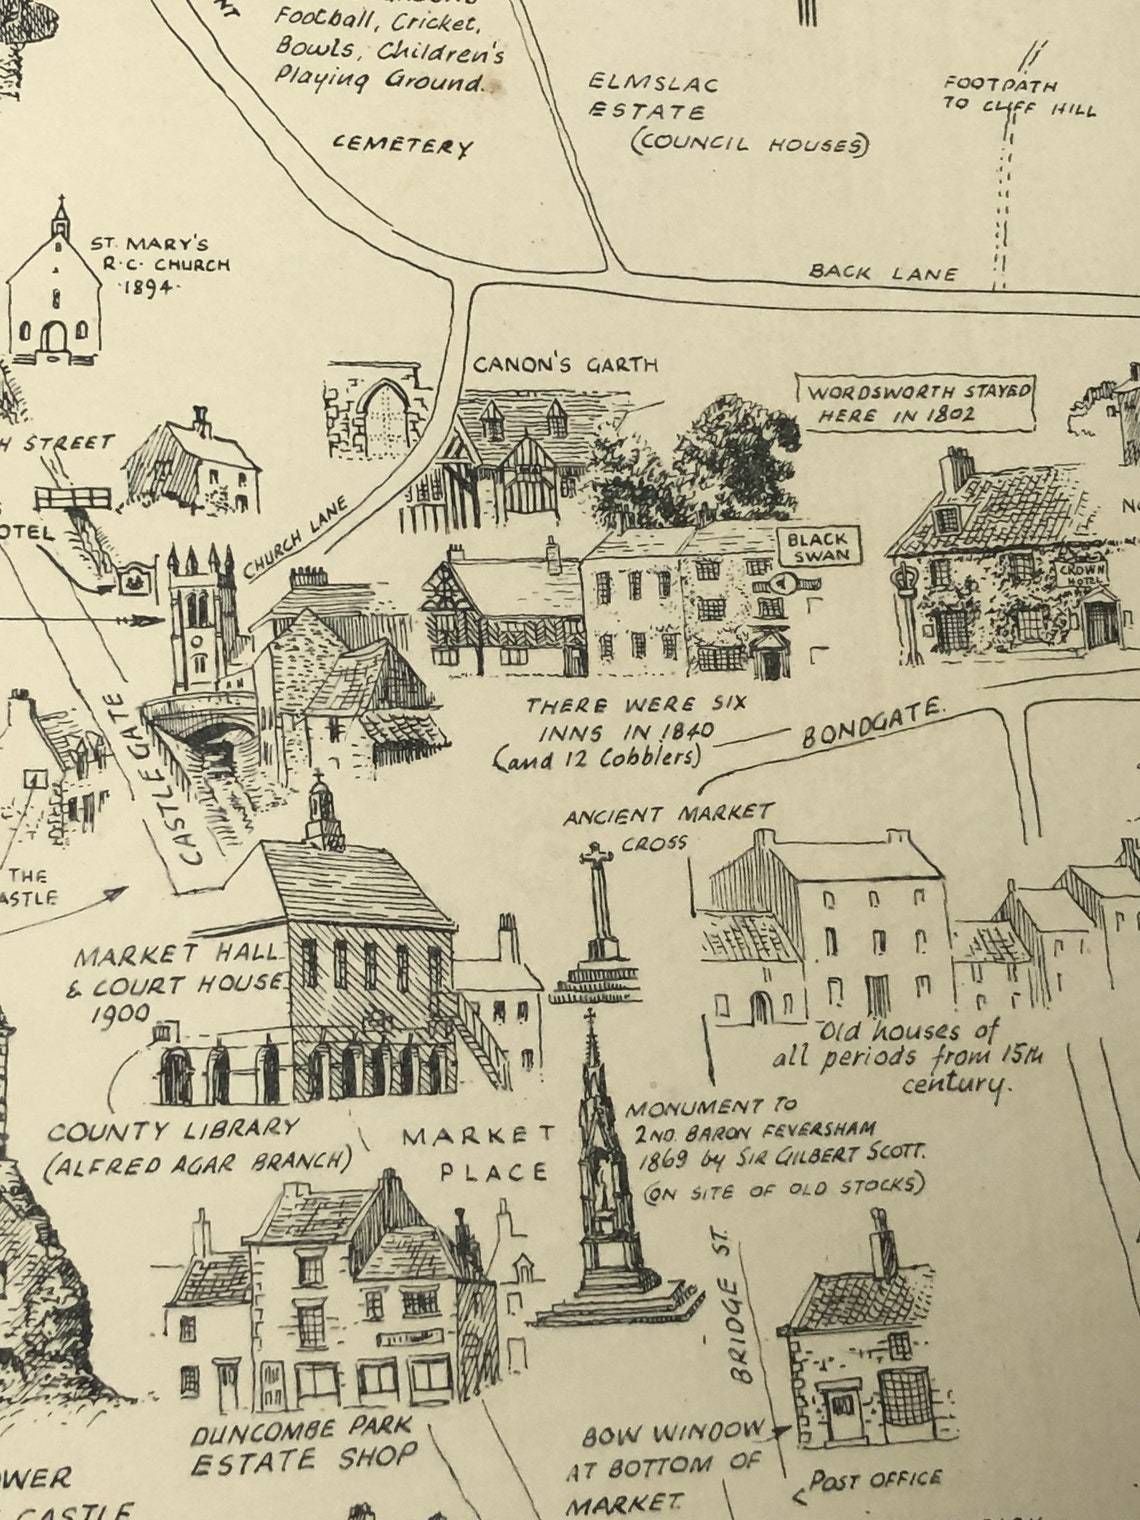 Football, Cricket,
Bowls, Children's
Playing Ground.
CEMETERY
ELMSLAC
ESTATE
(COUNCIL HOUSES)
FOOTPATH
TO CLIFF HILL
BACK LANE
ST. MARY'S
R.C. CHURCH
·1894·
CANON'S GARTH
WORDSWORTH STAYED
HERE IN 1802
STREET
CHURCH LANE
BLACK
SWAN
CROWN
HOTEL
CASTLEGATE
THERE WERE SIX
INNS IN 1840
(and 12 Cobblers)
BONDGATE.
ANCIENT MARKET
CROSS
THE
MARKET HALL
& COURT HOUSE
1900
Old houses of
all periods from 15th
century.
COUNTY LIBRARY
(ALFRED AGAR BRANCH)
MARKET
PLACE
MONUMENT TO
2ND. BARON FEVERSHAM
1869 by SIR GILBERT SCOTT.
(ON SITE OF OLD STOCKS)
BRIDGE ST.
DUNCOMBE PARK
ESTATE SHOP
BOW WINDOW
AT BOTTOM OF
MARKET.
POST OFFICE
CASTLE